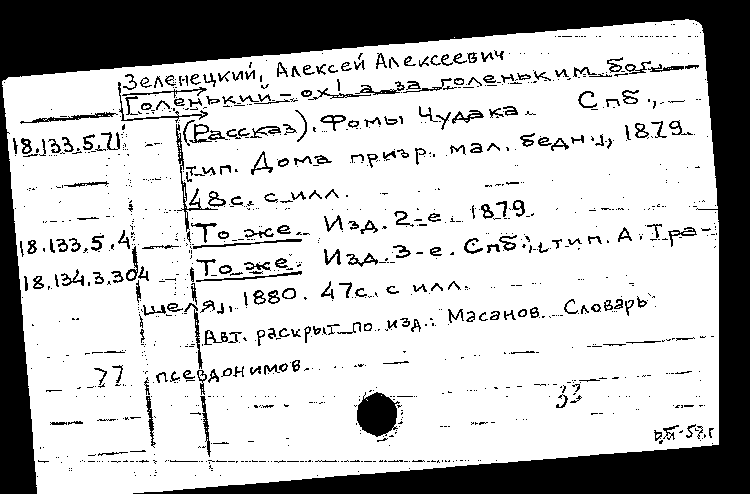 Зеленецкий, Алексей Алексеевич
Голенький - ох! а за голеньким бог.
18.133.5.71 (Рассказ). Фомы Чудака. Спб.,
тип. Дома призр. мал. бедн., 1879.
48 с. с илл.
18.133.5.4 То же. Изд. 2-е. 1879.
18.134.3.304 То же. Изд. 3-е. Спб., тип. А. Тра-
шеля, 1880. 47 с. с илл.
Авт. раскрыт по изд.: Масанов. Словарь
77 псевдонимов.
33